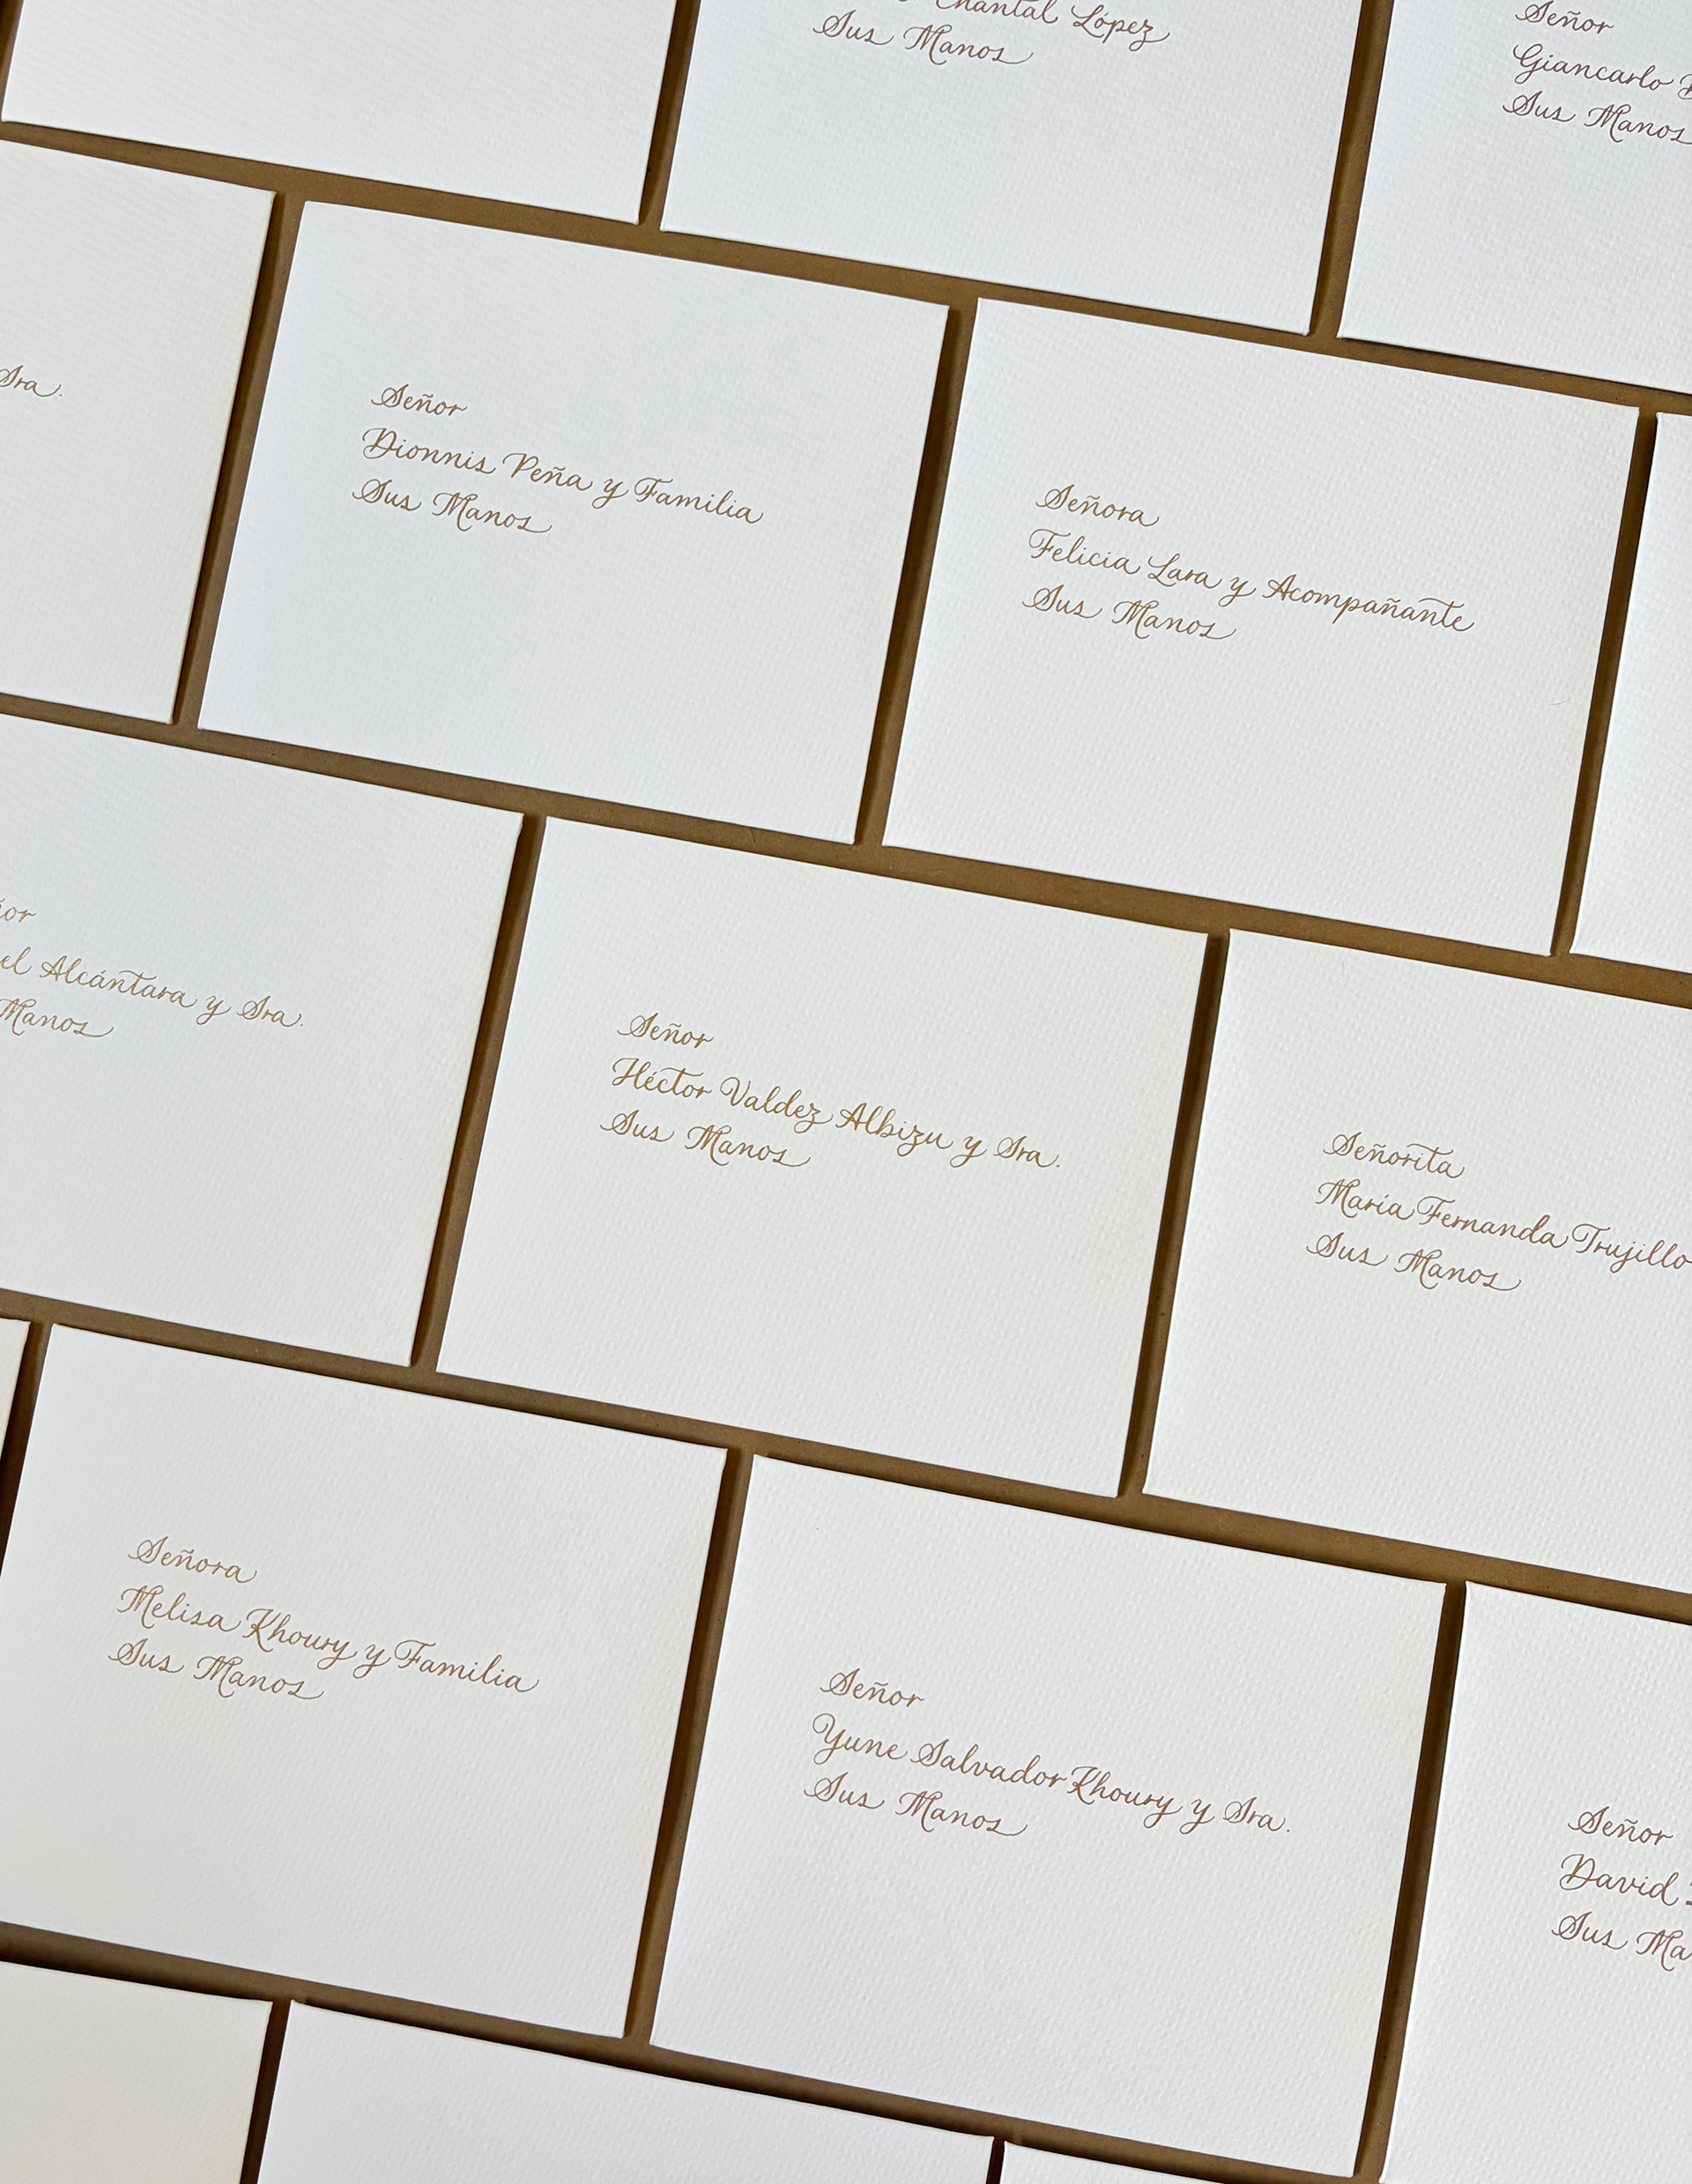 Chantal López
Sus Manos
Señor
Giancarlo
Sus Manos
Sra.
Señor
Dionnis Peña y Familia
Sus Manos
Señora
Felicia Lara y Acompañante
Sus Manos
Alcántara y Sra.
Manos
Señor
Héctor Valdez Albizu y Sra.
Sus Manos
Señorita
María Fernanda Trujillo
Sus Manos
Señora
Melisa Khoury y Familia
Sus Manos
Señor
Yune Salvador Khoury y Sra.
Sus Manos
Señor
David
Sus